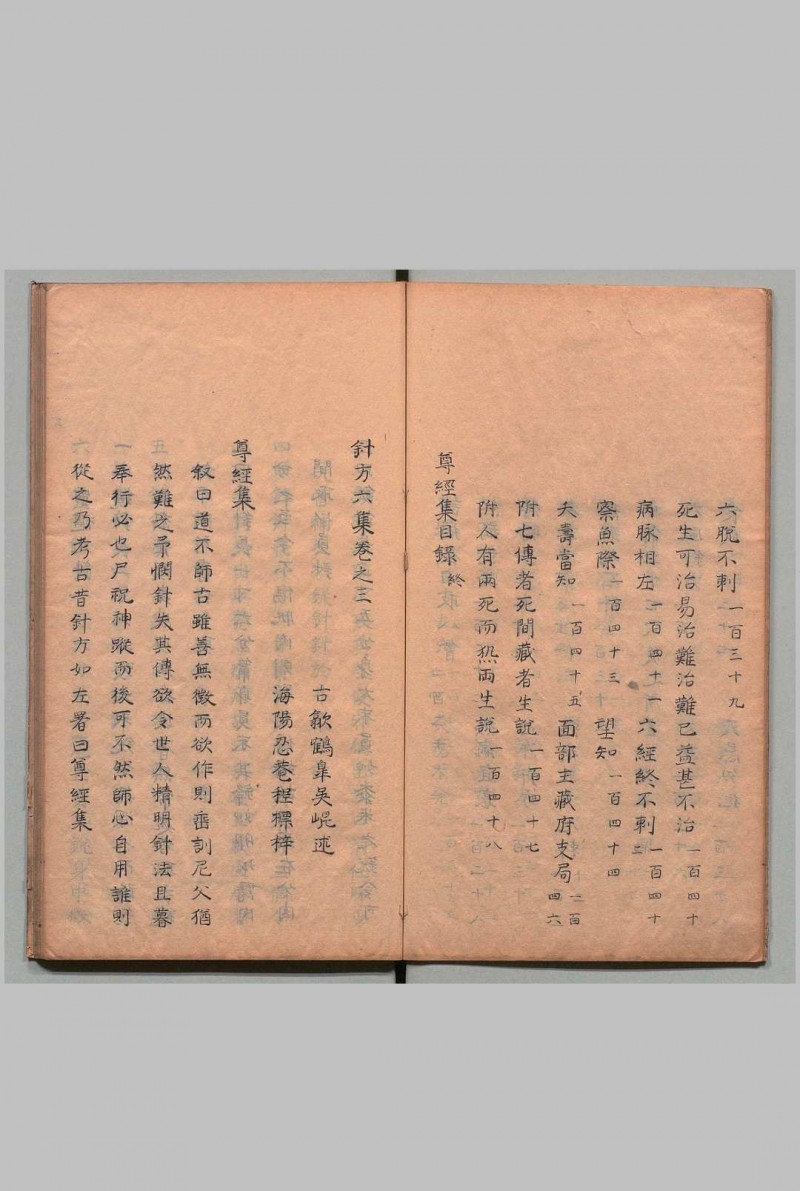 六脫不刺 一百三十九
死生可治易治難治難已益甚不治 一百四十
病脉相左 一百四十一 六經終不刺 一百四十二
察魚際 一百四十三 望知 一百四十四
夭壽當知 一百四十五 面部主藏府支局 一百四六
附七傳者死間藏者生說 一百四十七
附人有兩死而㤼兩生說 一百四十八
尊經集目録 終
針方六集卷之三
古歙鶴臯吳崐述
海陽忍菴程標梓
尊經集
叙曰道不師古雖善無徵而欲作則垂訓尼父猶
然難之予憫針失其傳欲令世人精明針法且暮
奉行必也尸祝神蹤而後可不然師心自用誰則
從之乃考古昔針方如左署曰尊經集